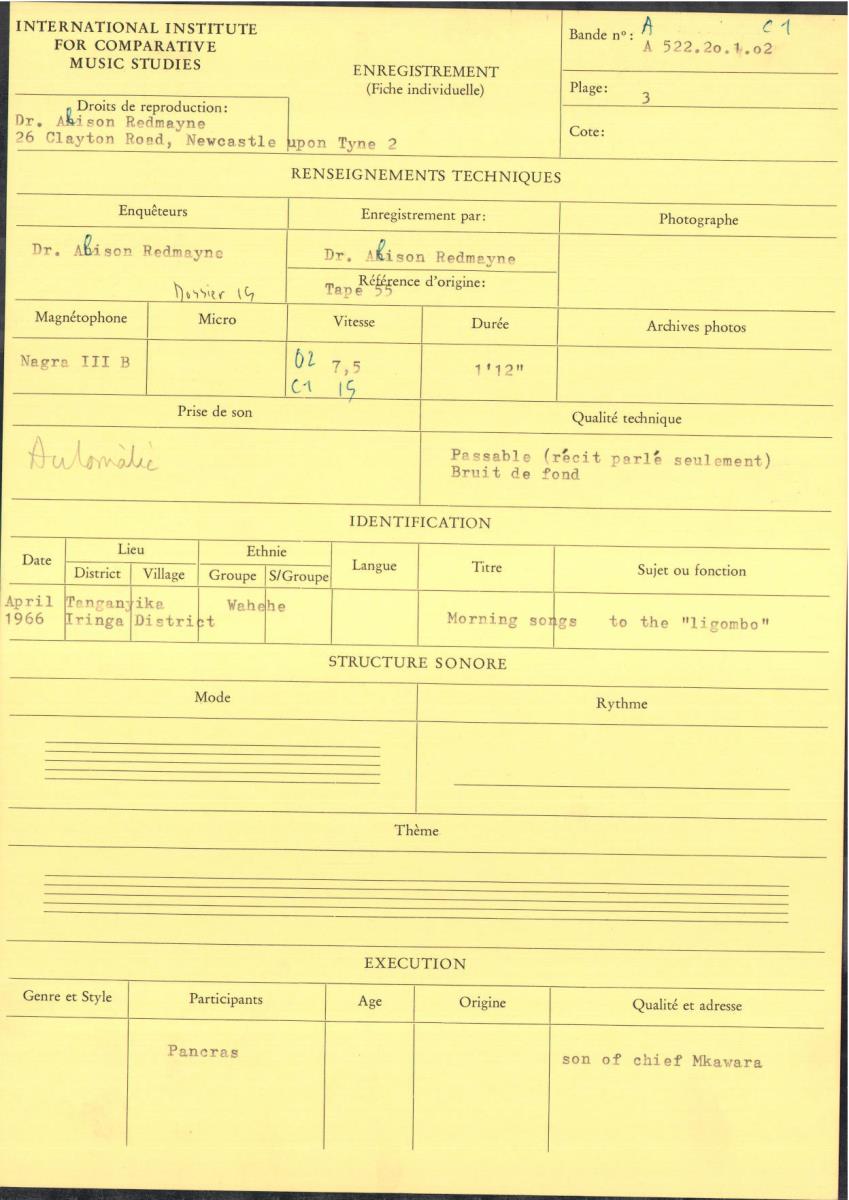 INTERNATIONAL INSTITUTE
FOR COMPARATIVE
MUSIC STUDIES
ENREGISTREMENT
(Fiche individuelle)
Bande nº: A C1
A 522.2o.1.o2
Plage: 3
Cote:
Droits de reproduction:
Dr. Alison Redmayne
26 Clayton Road, Newcastle upon Tyne 2
RENSEIGNEMENTS TECHNIQUES
Enquêteurs
Enregistrement par:
Photographe
Dr. Alison Redmayne
Dr. Alison Redmayne
Référence d'origine:
Tape 55
Dossier 19
Magnétophone
Micro
Vitesse
Durée
Archives photos
Nagra III B
02 7,5
C1 19
1'12"
Prise de son
Qualité technique
Automatic
Passable (récit parlé seulement)
Bruit de fond
IDENTIFICATION
Date
Lieu
District
Village
Ethnie
Groupe
S/Groupe
Langue
Titre
Sujet ou fonction
April Tanganyika Wahehe
1966 Iringa District
Morning songs to the "ligombo"
STRUCTURE SONORE
Mode
Rythme
Thème
EXECUTION
Genre et Style
Participants
Age
Origine
Qualité et adresse
Pancras
son of chief Mkawara